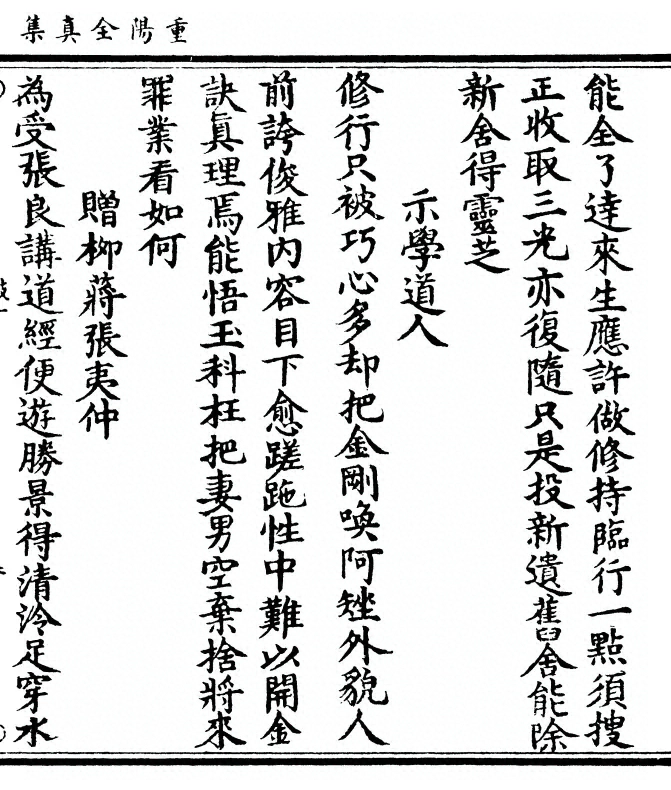 重陽全真集
能全了達來生應許做修持臨行一點須搜
正收取三光亦復隨只是投新遺舊舍能除
新舍得靈芝
示學道人
修行只被巧心多却把金剛喚阿矬外貌人
前誇俊雅内容目下愈蹉跎性中難以開金
訣眞理焉能悟玉科枉把妻男空棄捨將來
罪業看如何
贈柳蔣張夷仲
為受張良講道經便遊勝景得清泠足穿水